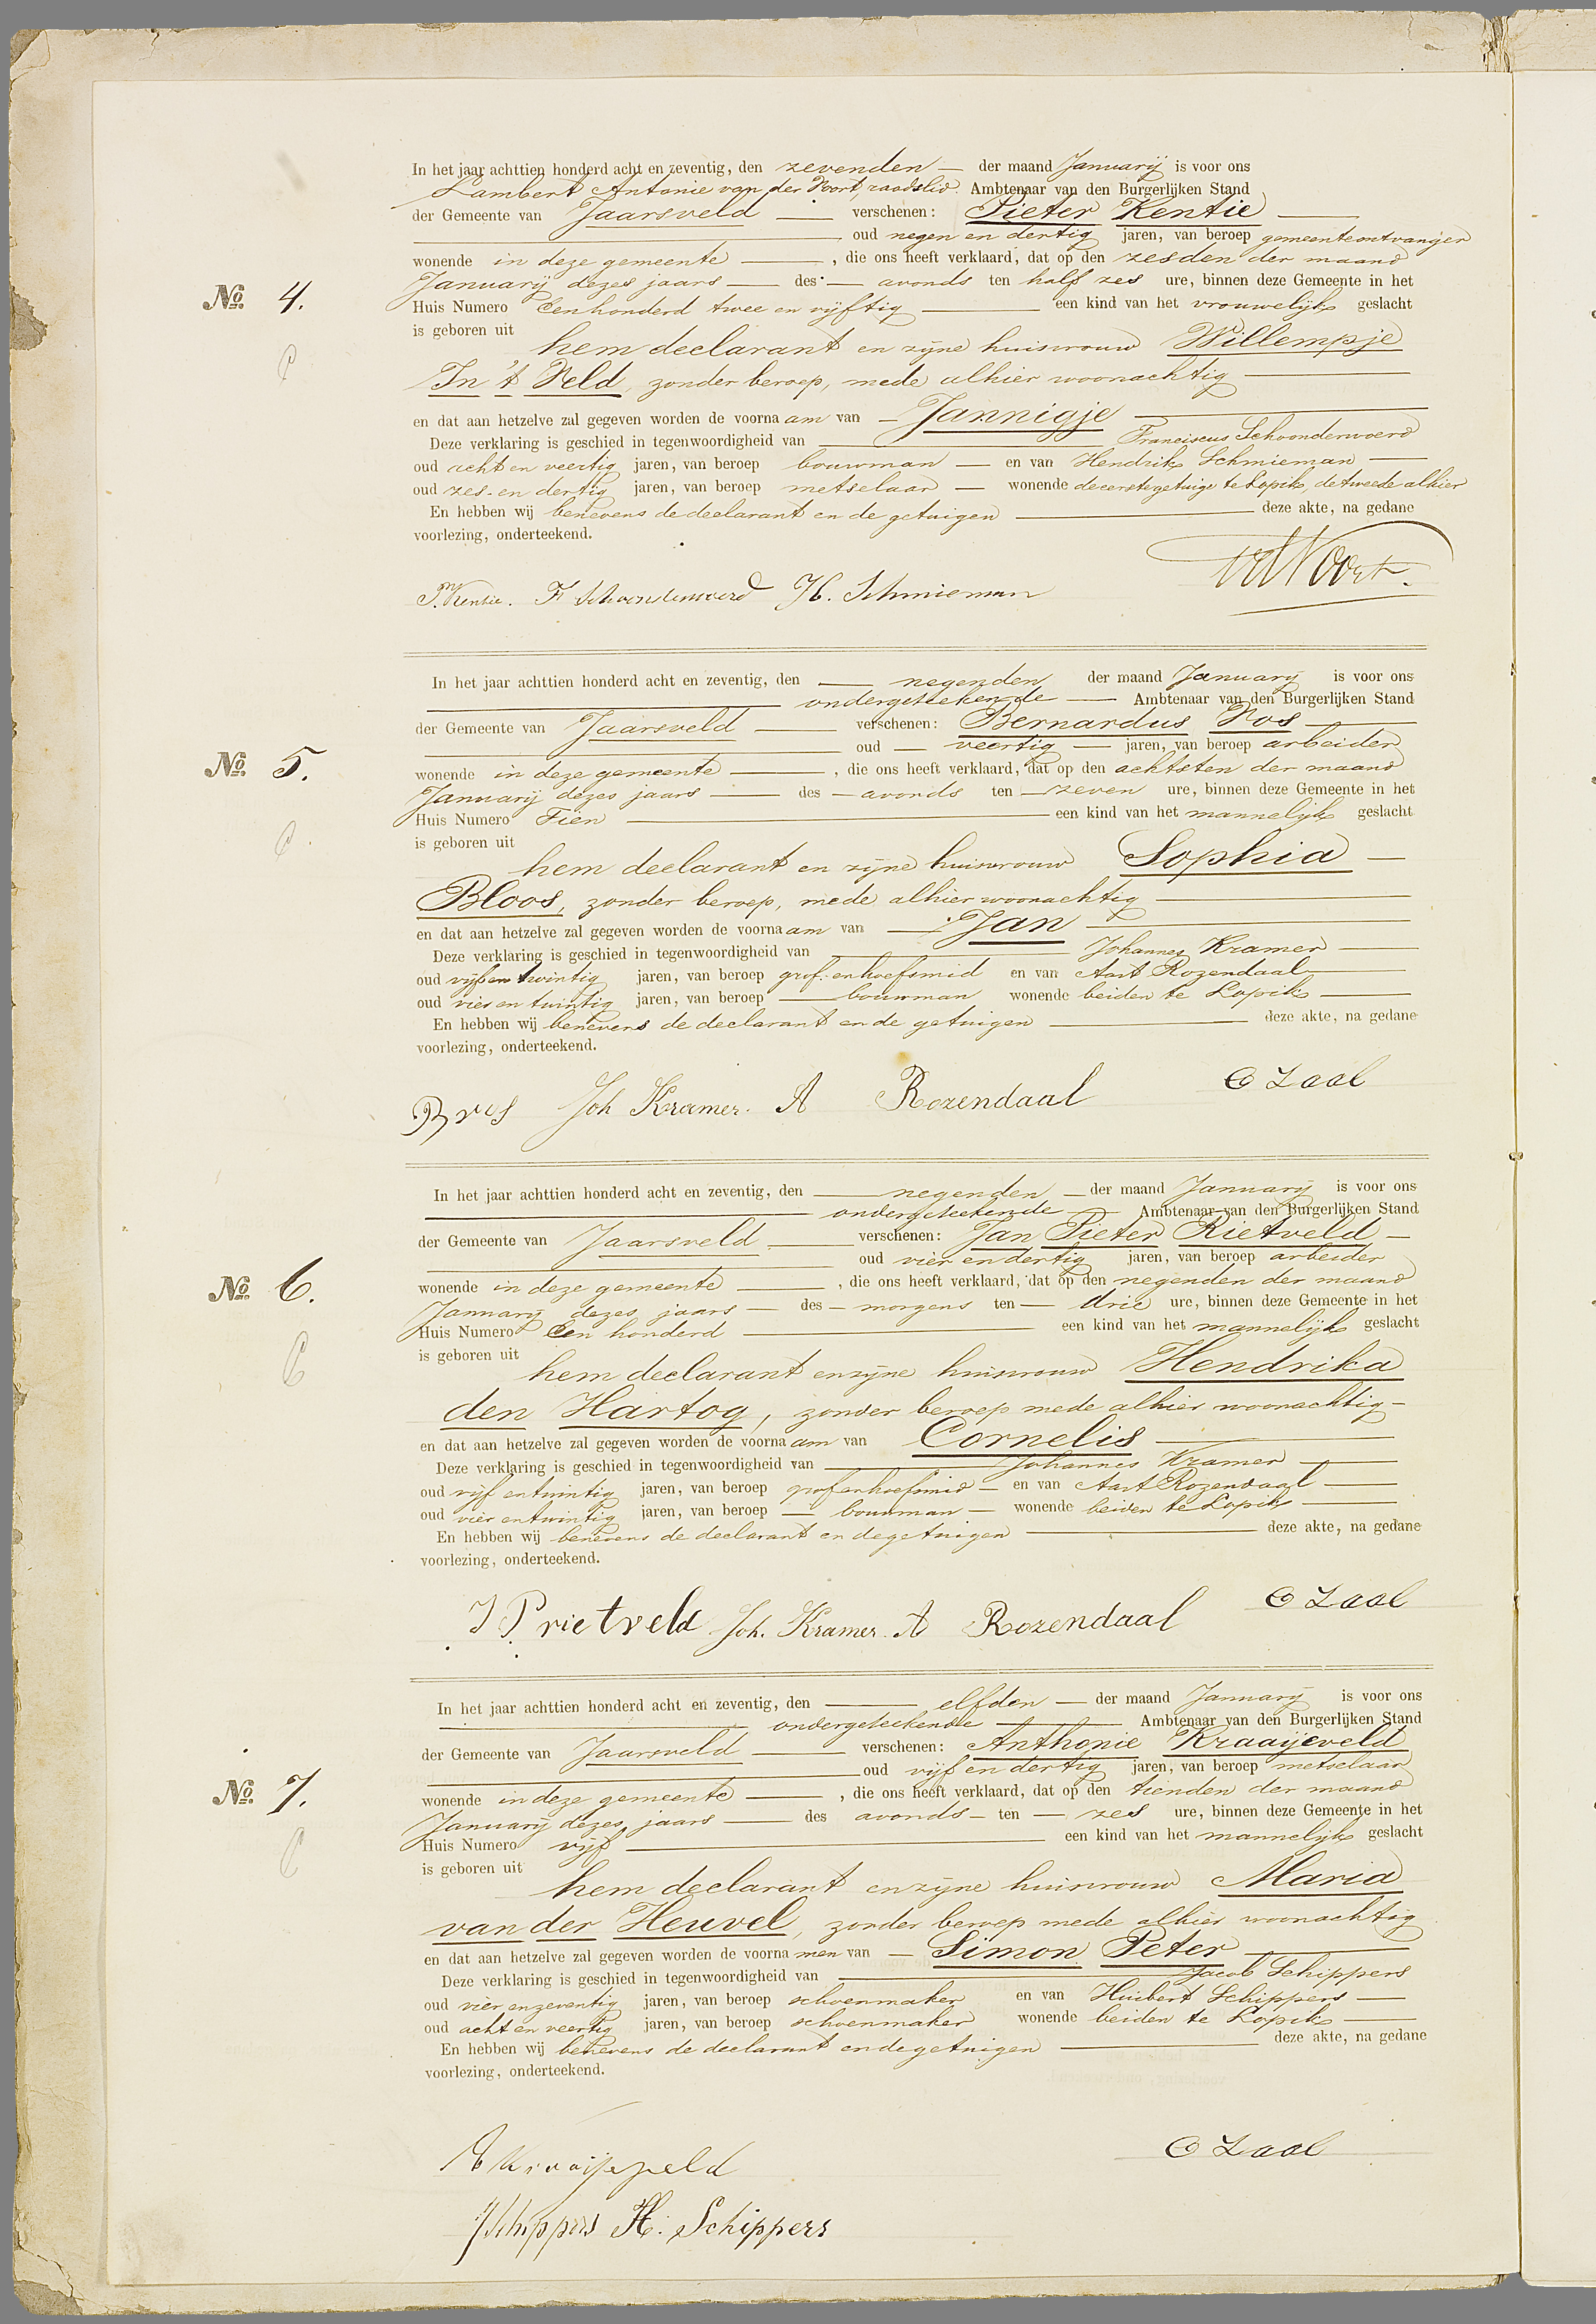 In het jaar achttien honderd acht en zeventig, den zevenden der maand Januarij is voor ons
Lambert Antonie van der Voort, raadslid Ambtenaar van den Burgerlijken Stand
der Gemeente van Jaarsveld verschenen: Pieter Kentie
oud negen en dertig jaren, van beroep gemeenteontvanger
wonende in deze gemeente , die ons heeft verklaard, dat op den zesden der maand
Januarij dezes jaars des avonds ten half zes ure, binnen deze Gemeente in het
No. 4. Huis Numero Eenhonderd twee en vijftig een kind van het vrouwelijk geslacht
is geboren uit hem declarant en zijne huisvrouw Willempje
In 't Veld, zonder beroep, mede alhier woonachtig
en dat aan hetzelve zal gegeven worden de voornaam van Jannigje
Deze verklaring is geschied in tegenwoordigheid van Franciscus Schoonderwoerd
oud acht en veertig jaren, van beroep bouwman en van Hendrik Schmieman
oud zes en dertig jaren, van beroep metselaar wonende de eerste getuige te Lopik, de tweede alhier
En hebben wij benevens de declarant en de getuigen deze akte, na gedane
voorlezing, onderteekend.
P. Kentie. F Schoonderwoerd H. Schmieman vd Voort.
In het jaar achttien honderd acht en zeventig, den negenden der maand Januarij is voor ons
ondergeteekende Ambtenaar van den Burgerlijken Stand
der Gemeente van Jaarsveld verschenen: Bernardus Vos
oud veertig jaren, van beroep arbeider
No. 5. wonende in deze gemeente , die ons heeft verklaard, dat op den achtsten der maand
Januarij dezes jaars des avonds ten zeven ure, binnen deze Gemeente in het
Huis Numero Tien een kind van het mannelijk geslacht
is geboren uit hem declarant en zijne huisvrouw Sophia
Bloos, zonder beroep, mede alhier woonachtig
en dat aan hetzelve zal gegeven worden de voornaam van Jan
Deze verklaring is geschied in tegenwoordigheid van Johannes Kramer
oud vijf en twintig jaren, van beroep grof- en hoefsmid en van Aart Rozendaal
oud vier en twintig jaren, van beroep bouwman wonende beiden te Lopik
En hebben wij benevens de declarant en de getuigen deze akte, na gedane
voorlezing, onderteekend.
B vos Joh Kramer. A Rozendaal C Zaal
In het jaar achttien honderd acht en zeventig, den negenden der maand Januarij is voor ons
ondergeteekende Ambtenaar van den Burgerlijken Stand
der Gemeente van Jaarsveld verschenen: Jan Pieter Rietveld
oud vier en dertig jaren, van beroep arbeider
No. 6. wonende in deze gemeente , die ons heeft verklaard, dat op den negenden der maand
Januarij dezes jaars des morgens ten drie ure, binnen deze Gemeente in het
Huis Numero Een honderd een kind van het mannelijk geslacht
is geboren uit hem declarant en zijne huisvrouw Hendrika
den Hartog, zonder beroep mede alhier woonachtig
en dat aan hetzelve zal gegeven worden de voornaam van Cornelis
Deze verklaring is geschied in tegenwoordigheid van Johannes Kramer
oud vijf en twintig jaren, van beroep grof en hoefsmid en van Aart Rozendaal
oud vier en twintig jaren, van beroep bouwman wonende beiden te Lopik
En hebben wij benevens de declarant en de getuigen deze akte, na gedane
voorlezing, onderteekend.
J P rietveld Joh. Kramer. A Rozendaal C Zaal
In het jaar achttien honderd acht en zeventig, den elfden der maand Januarij is voor ons
ondergeteekende Ambtenaar van den Burgerlijken Stand
der Gemeente van Jaarsveld verschenen: Anthonie Kraaijeveld
oud vijf en dertig jaren, van beroep metselaar
No. 7. wonende in deze gemeente , die ons heeft verklaard, dat op den tienden der maand
Januarij dezes jaars des avonds ten zes ure, binnen deze Gemeente in het
Huis Numero vijf een kind van het mannelijk geslacht
is geboren uit hem declarant en zijne huisvrouw Maria
van der Heuvel, zonder beroep mede alhier woonachtig
en dat aan hetzelve zal gegeven worden de voornamen van Simon Peter
Deze verklaring is geschied in tegenwoordigheid van Jacob Schippers
oud vier en zeventig jaren, van beroep schoenmaker en van Huibert Schippers
oud acht en veertig jaren, van beroep schoenmaker wonende beiden te Lopik
En hebben wij benevens de declarant en de getuigen deze akte, na gedane
voorlezing, onderteekend.
A Kraaijeveld C Zaal
J Schippers H. Schippers